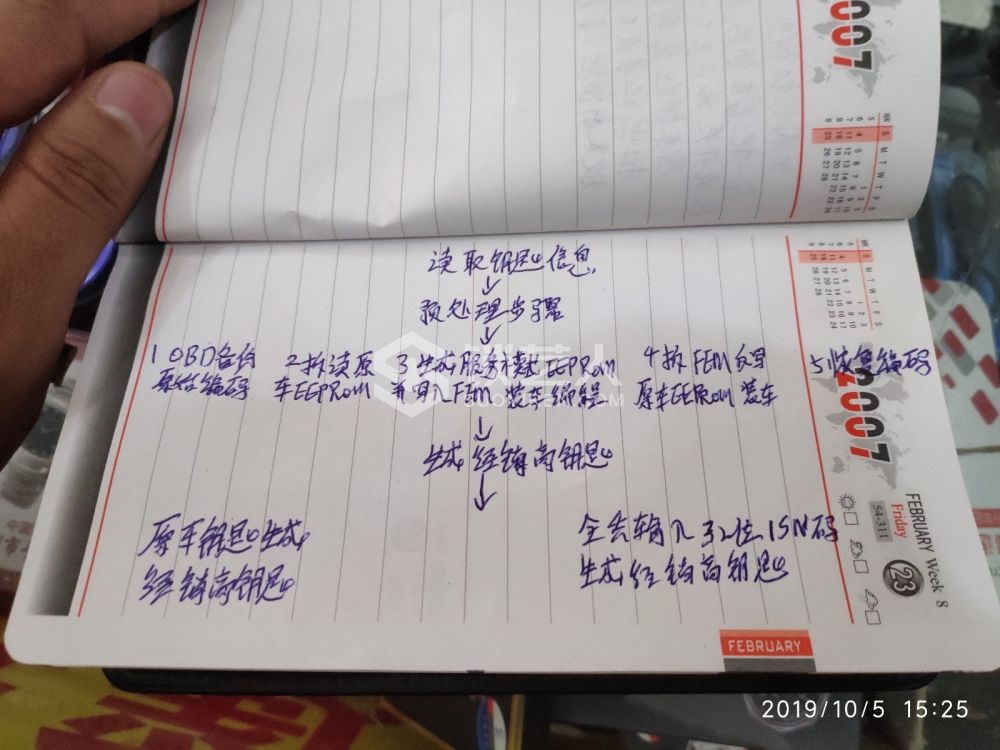 2007
WK S M T W T F S
2007
WK S M T W T F S
读取钥匙信息
↓
预处理步骤
↓
1 OBD备份 2拆读原 3生成服务模式EEPROM 4拆FEM反写 5恢复编码
原始编码 车EEPROM 并写入FEM 装车编程 原车EEPROM 装车
↓
生成经销商钥匙
↓
原车钥匙生成 全丢输入32位ISN码
经销商钥匙 生成经销商钥匙
FEBRUARY Week 8
Friday
54-311
23
FEBRUARY
2019/10/5 15:25